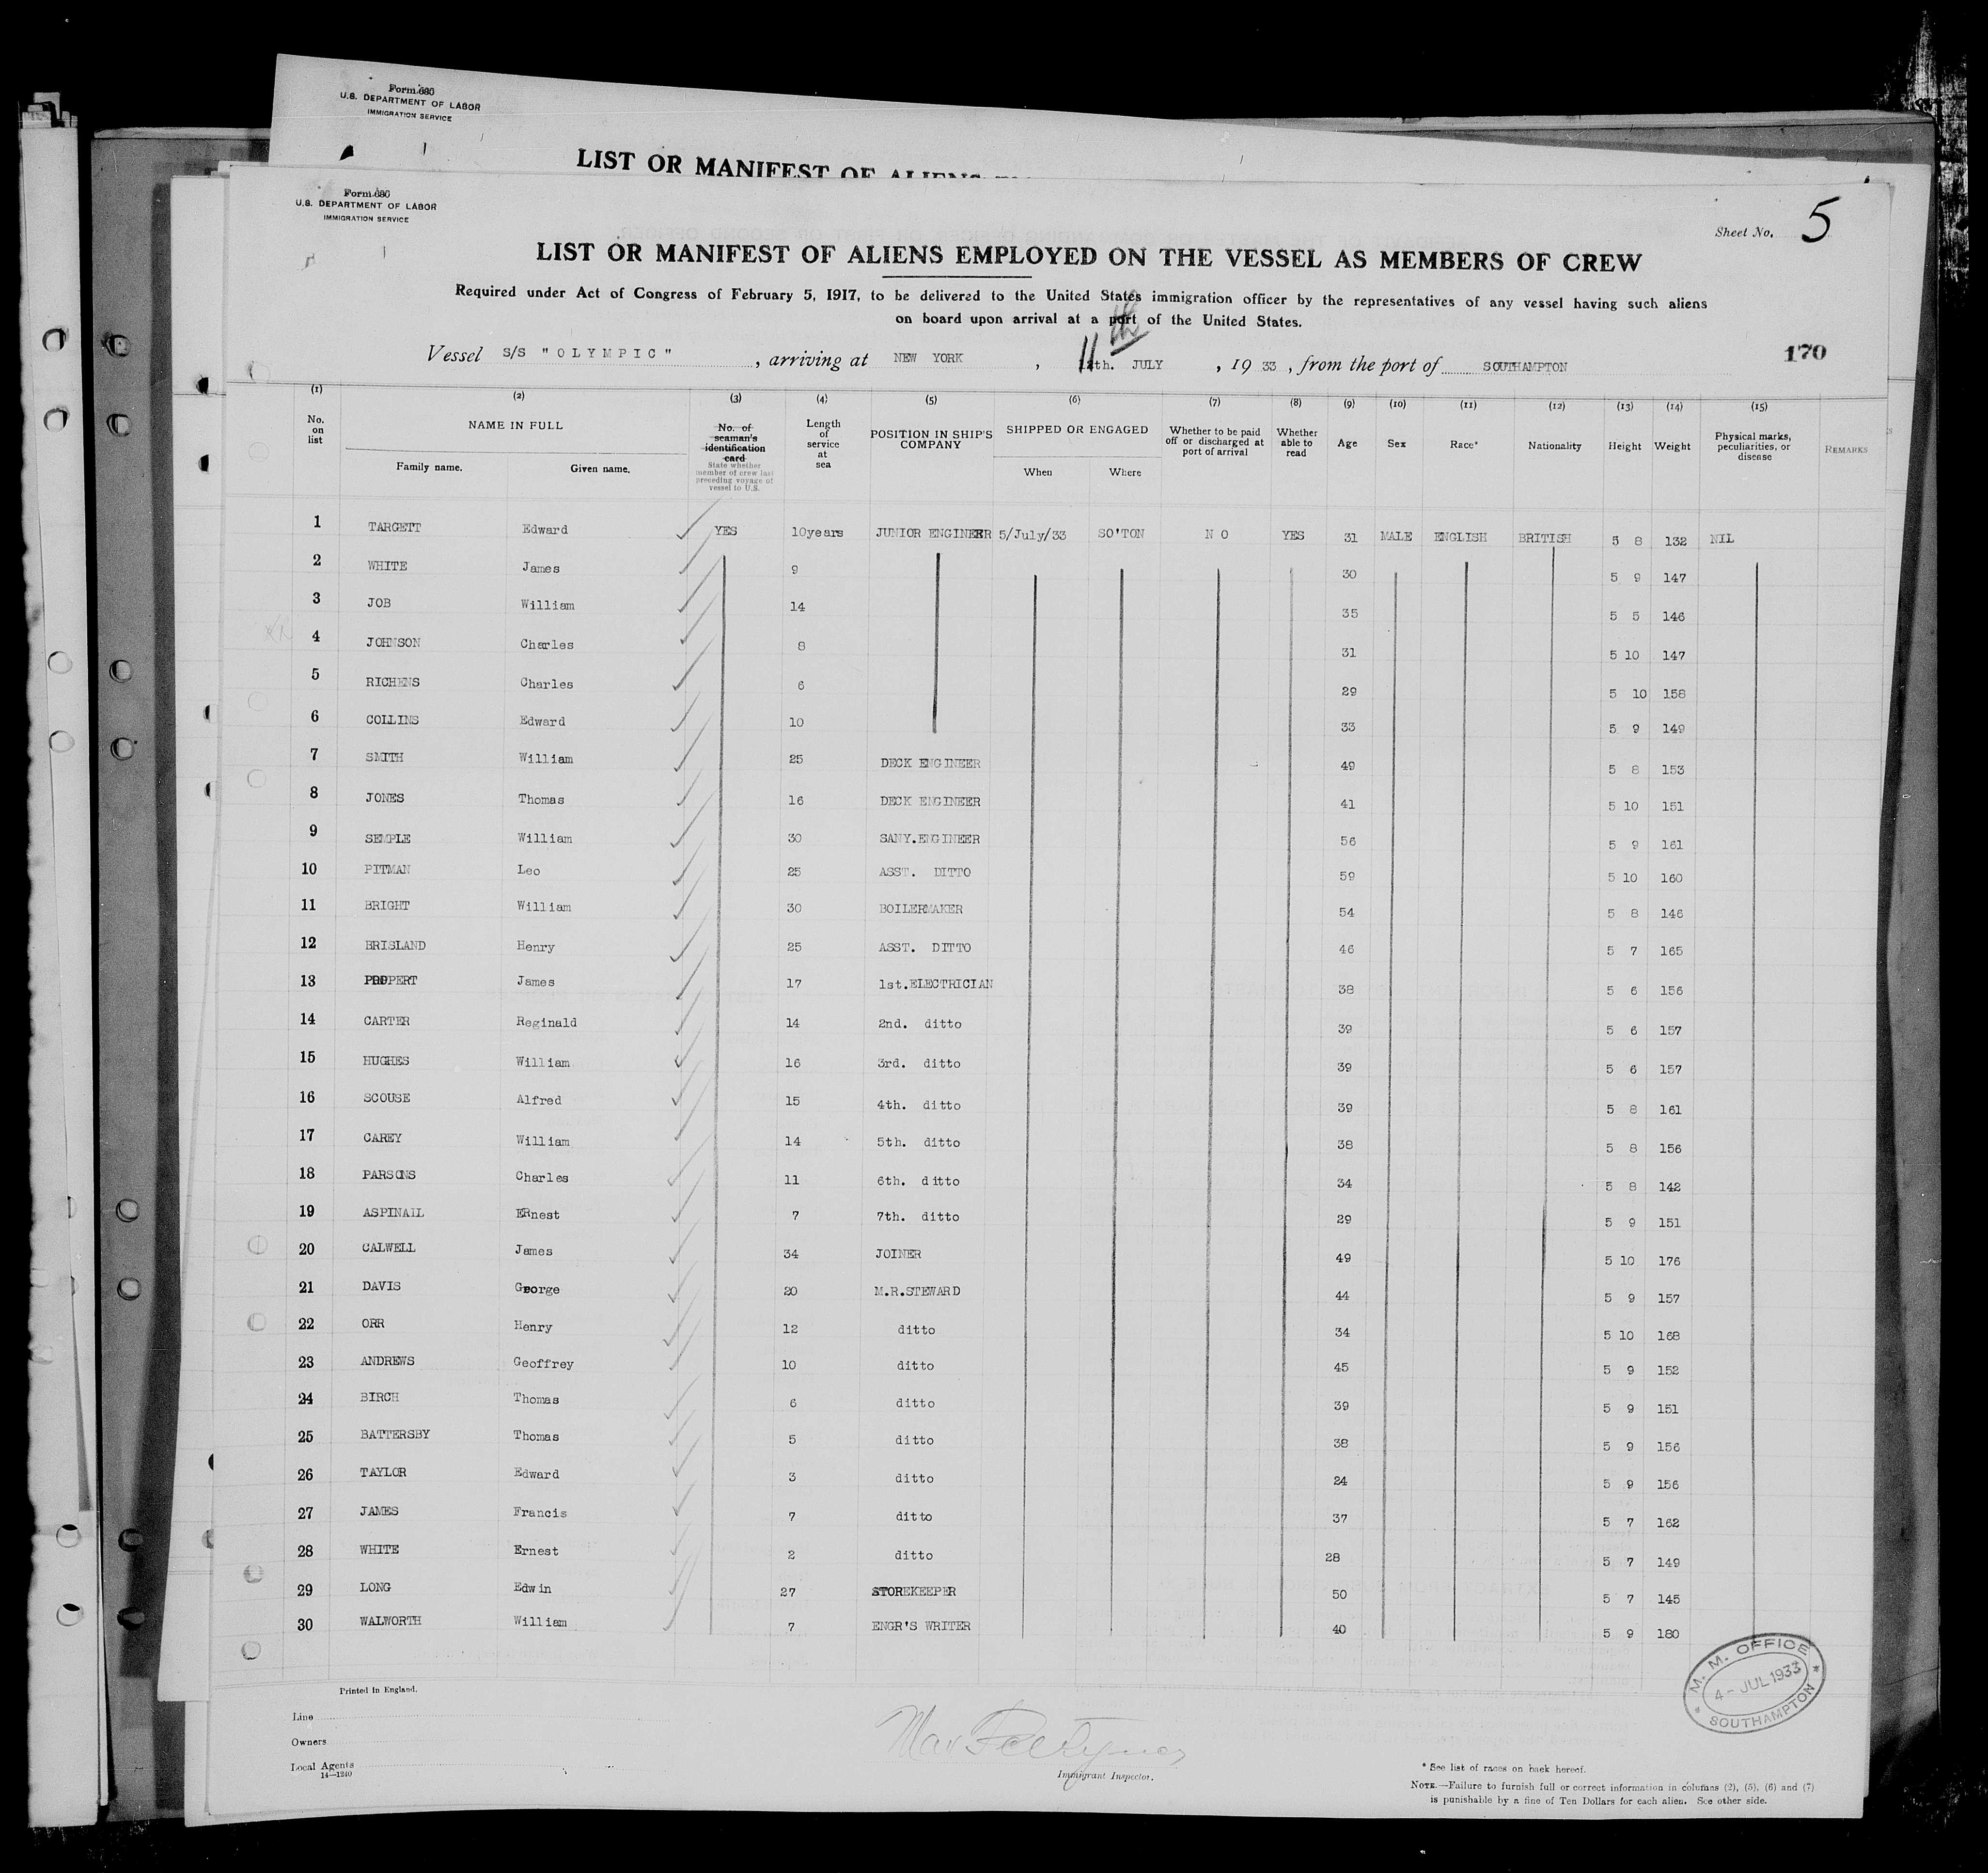 Form 680
U.S. DEPARTMENT OF LABOR
IMMIGRATION SERVICE
LIST OR MANIFEST OF ALIENS
Form 680
U.S. DEPARTMENT OF LABOR
IMMIGRATION SERVICE
Sheet No. 5
LIST OR MANIFEST OF ALIENS EMPLOYED ON THE VESSEL AS MEMBERS OF CREW
Required under Act of Congress of February 5, 1917, to be delivered to the United States immigration officer by the representatives of any vessel having such aliens
on board upon arrival at a port of the United States.
Vessel S/S "OLYMPIC", arriving at NEW YORK, 11th. JULY, 1933, from the port of SOUTHAMPTON
170
(1) (2) (3) (4) (5) (6) (7) (8) (9) (10) (11) (12) (13) (14) (15)
No. on list
NAME IN FULL
Family name. Given name.
No. of seaman's identification card
State whether member of crew last preceding voyage of vessel to U.S.
Length of service at sea
POSITION IN SHIP'S COMPANY
SHIPPED OR ENGAGED
When Where
Whether to be paid off or discharged at port of arrival
Whether able to read
Age Sex Race* Nationality Height Weight
Physical marks, peculiarities, or disease
REMARKS
1 TARGETT Edward YES 10years JUNIOR ENGINEER 5/July/33 SO'TON N O YES 31 MALE ENGLISH BRITISH 5 8 132 NIL
2 WHITE James 9 30 5 9 147
3 JOB William 14 35 5 5 146
4 JOHNSON Charles 8 31 5 10 147
5 RICHENS Charles 6 29 5 10 158
6 COLLINS Edward 10 33 5 9 149
7 SMITH William 25 DECK ENGINEER 49 5 8 153
8 JONES Thomas 16 DECK ENGINEER 41 5 10 151
9 SEMPLE William 30 SANY.ENGINEER 56 5 9 161
10 PITMAN Leo 25 ASST. DITTO 59 5 10 160
11 BRIGHT William 30 BOILERMAKER 54 5 8 146
12 BRISLAND Henry 25 ASST. DITTO 46 5 7 165
13 PROPERT James 17 1st.ELECTRICIAN 38 5 6 156
14 CARTER Reginald 14 2nd. ditto 39 5 6 157
15 HUGHES William 16 3rd. ditto 39 5 6 157
16 SCOUSE Alfred 15 4th. ditto 39 5 8 161
17 CAREY William 14 5th. ditto 38 5 8 156
18 PARSONS Charles 11 6th. ditto 34 5 8 142
19 ASPINALL ERnest 7 7th. ditto 29 5 9 151
20 CALWELL James 34 JOINER 49 5 10 176
21 DAVIS George 20 M.R.STEWARD 44 5 9 157
22 ORR Henry 12 ditto 34 5 10 168
23 ANDREWS Geoffrey 10 ditto 45 5 9 152
24 BIRCH Thomas 6 ditto 39 5 9 151
25 BATTERSBY Thomas 5 ditto 38 5 9 156
26 TAYLOR Edward 3 ditto 24 5 9 156
27 JAMES Francis 7 ditto 37 5 7 162
28 WHITE Ernest 2 ditto 28 5 7 149
29 LONG Edwin 27 STOREKEEPER 50 5 7 145
30 WALWORTH William 7 ENGR'S WRITER 40 5 9 180
M. M. OFFICE
4 - JUL 1933
SOUTHAMPTON
Printed in England.
Line
Owners
Local Agents
14—1240
Immigrant Inspector.
* See list of races on back hereof.
NOTE.—Failure to furnish full or correct information in columns (2), (5), (6) and (7)
is punishable by a fine of Ten Dollars for each alien. See other side.